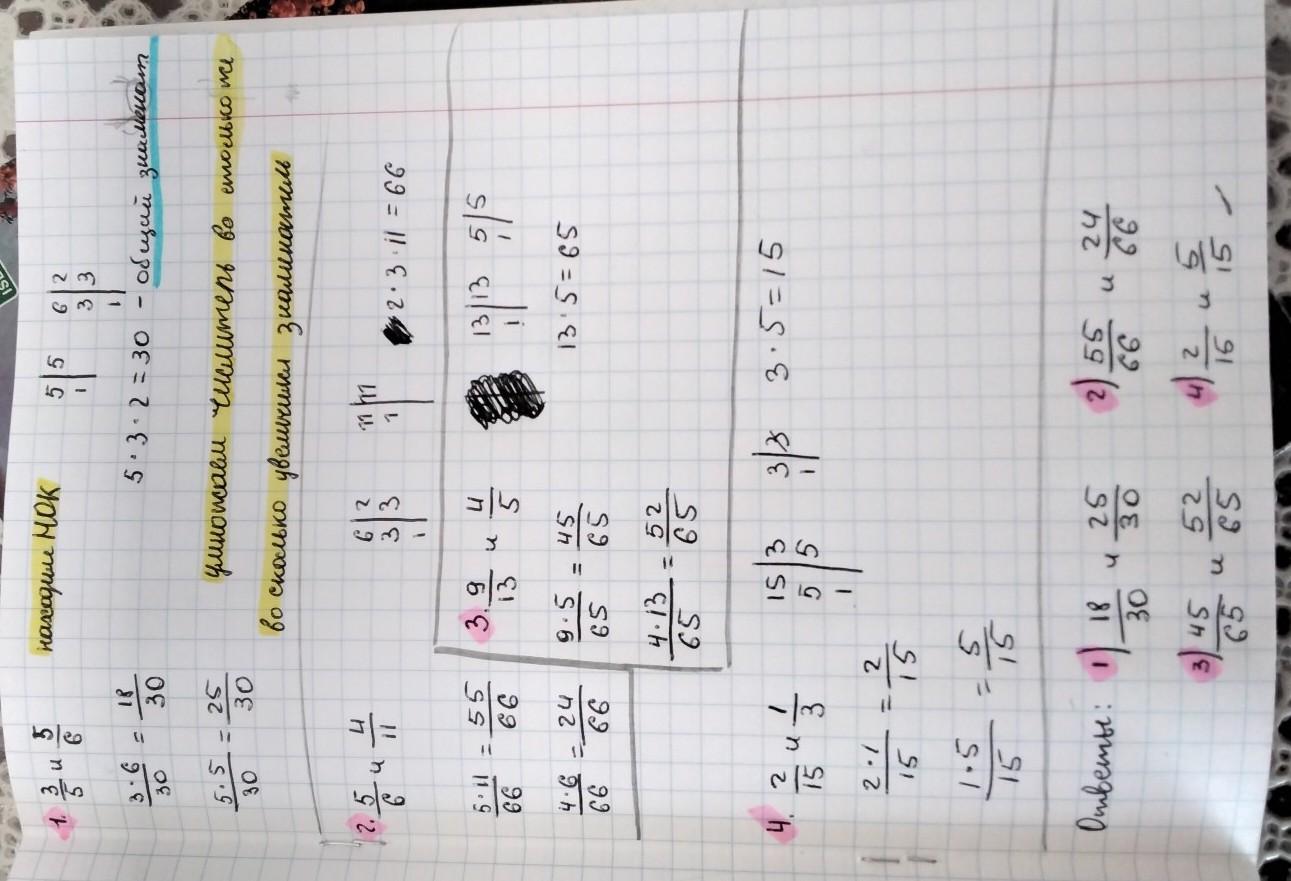 1. 3/5 и 5/6
находим НОК
5|5 6|2
1| 3|3
1
3·6/30 = 18/30
5·3·2=30 - общий знаменат
5·5/30 = 25/30
умножаем числитель во столько же
во сколько увеличили знаменатель
2. 5/6 и 4/11
6|2 11|11
3|3 1|
1|
2·3·11=66
5·11/66 = 55/66
4·6/66 = 24/66
3. 9/13 и 4/5
13|13 5|5
1| 1|
9·5/65 = 45/65
13·5=65
4·13/65 = 52/65
4. 2/15 и 1/3
15|3 3|3 3·5=15
5|5 1|
1|
2·1/15 = 2/15
1·5/15 = 5/15
Ответы: 1) 18/30 и 25/30 2) 55/66 и 24/66
3) 45/65 и 52/65 4) 2/15 и 5/15
ISL